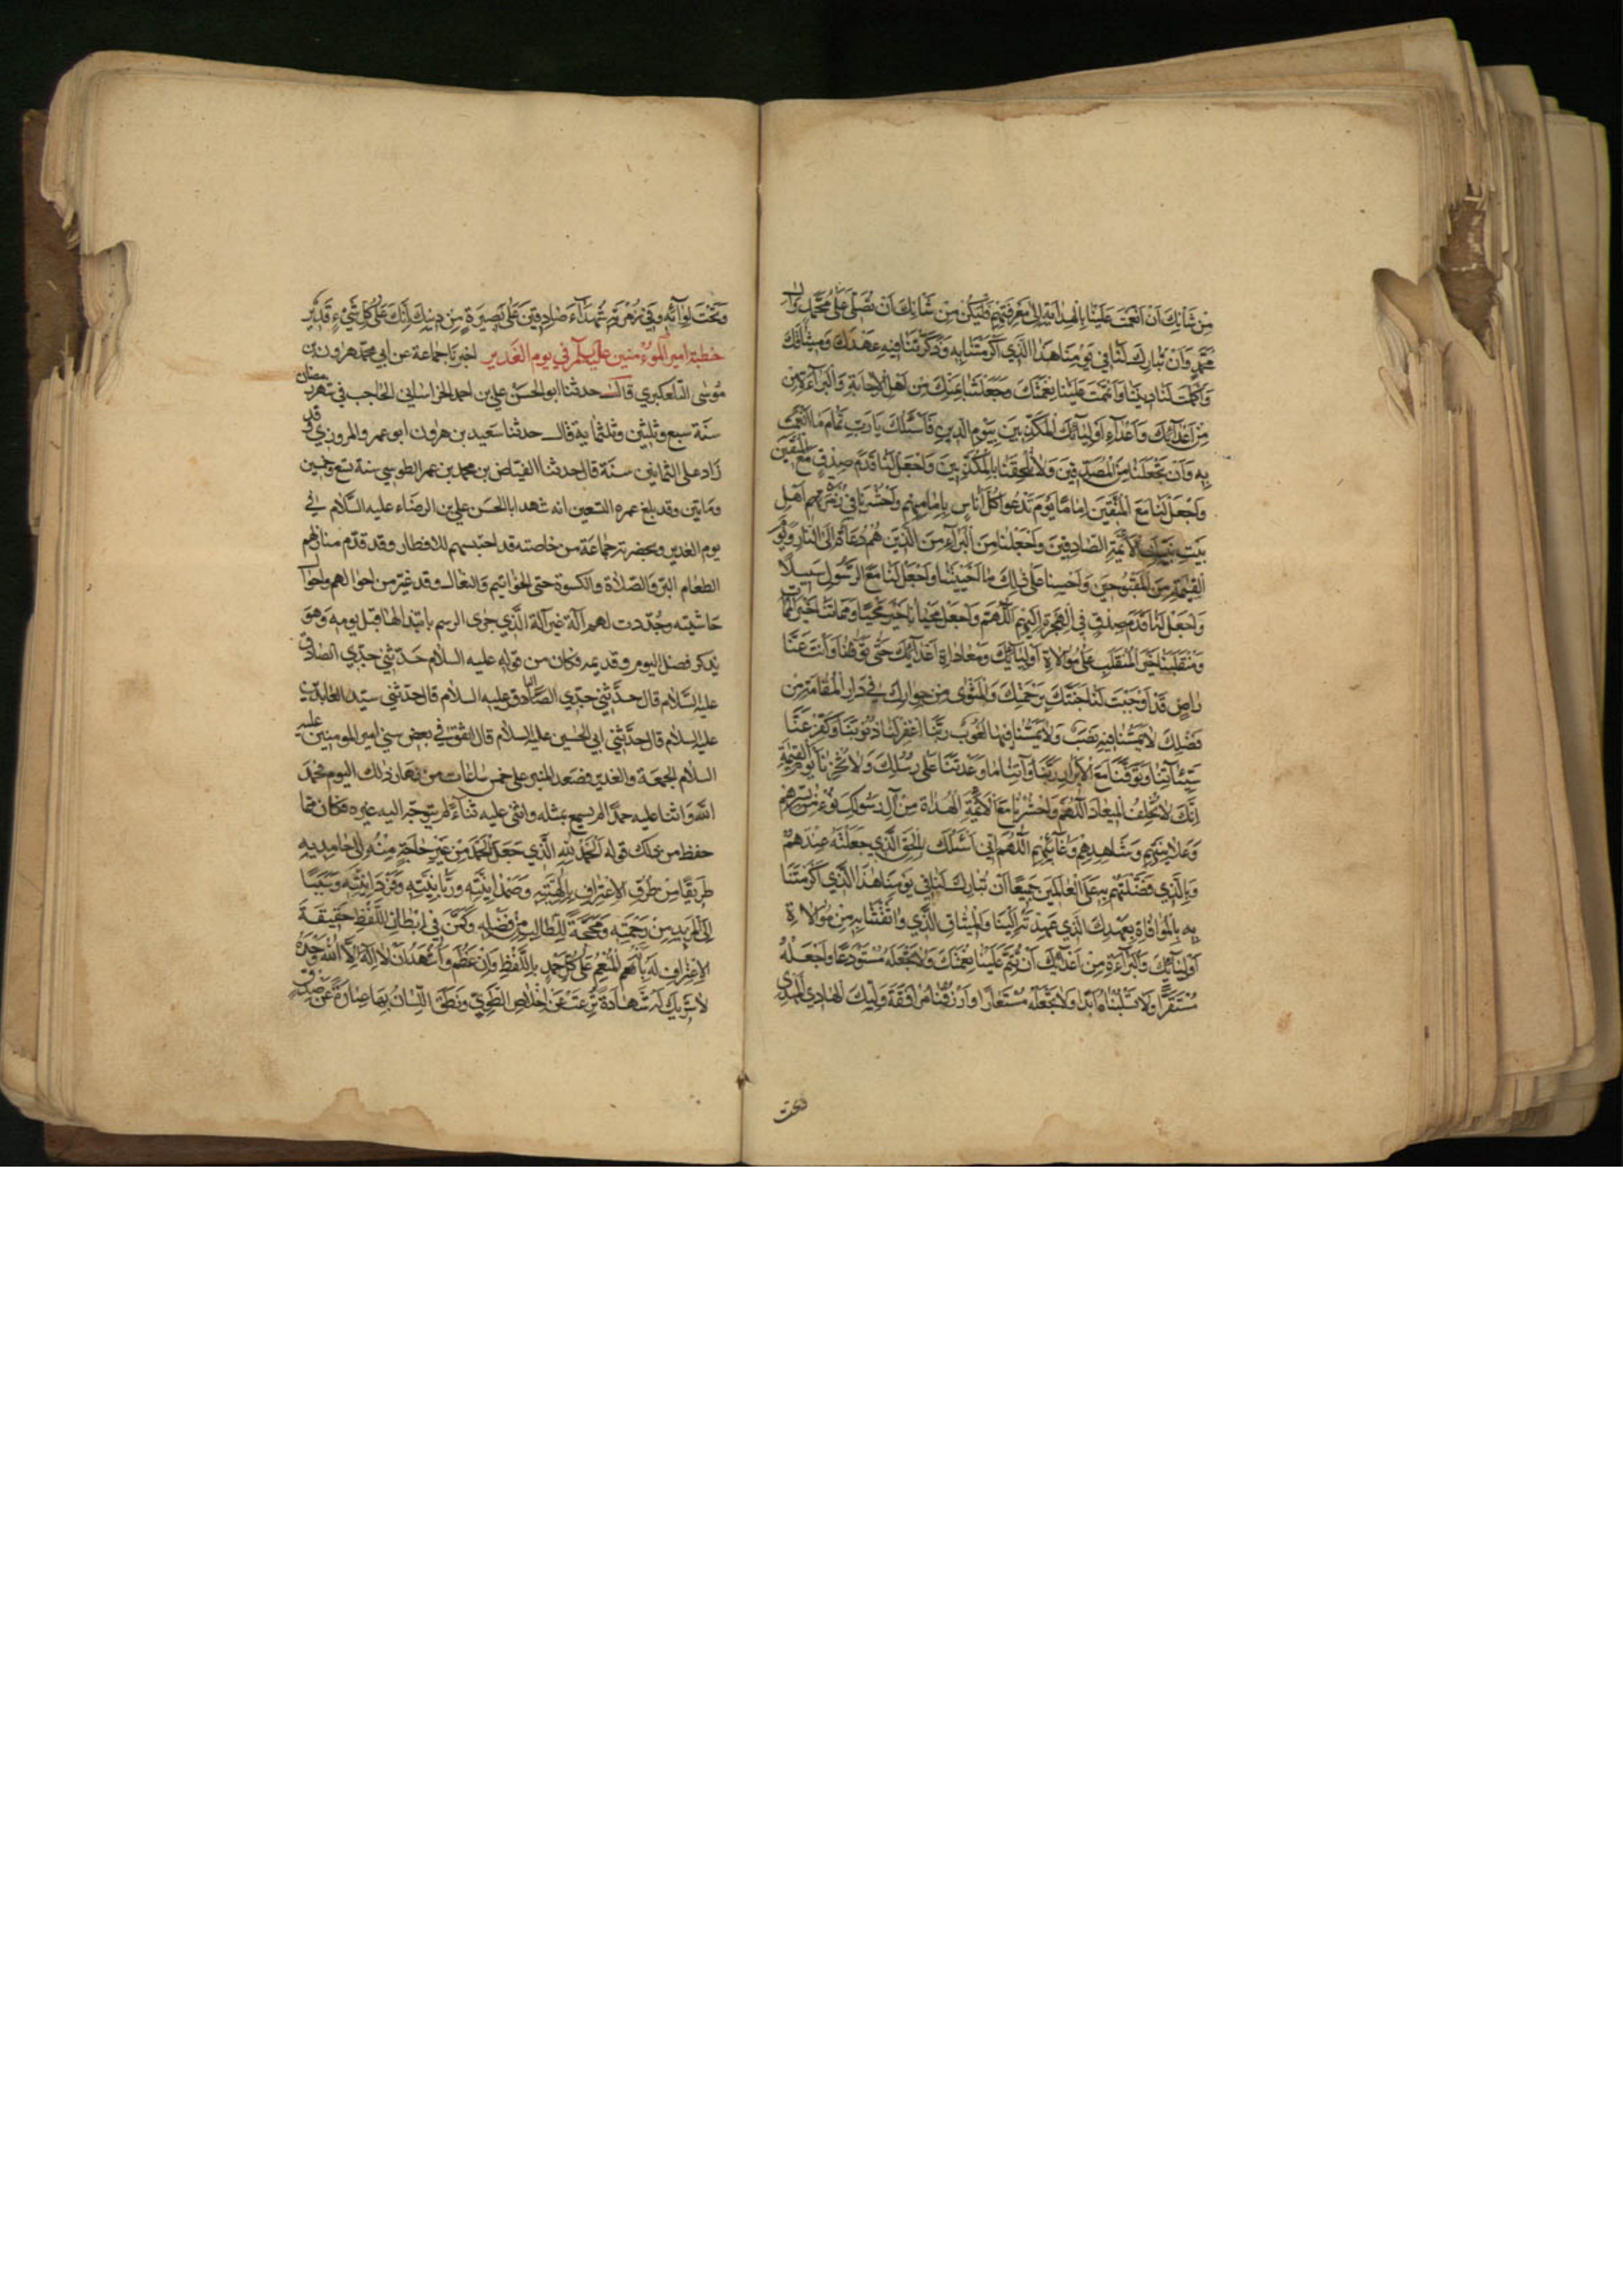 مِنْ شَأْنِكَ اَنْ اَنْعَمْتَ عَلَيْنَا بِالْهِدَايَةِ اِلىٰ مَعْرِفَتِهِمْ فَلْيَكُنْ مِنْ شَأْنِكَ اَنْ تُصَلِّيَ عَلىٰ مُحَمَّدٍ وَآلِ
مُحَمَّدٍ وَاَنْ تُبَارِكَ لَنَا فِي يَوْمِنَا هٰذَا الَّذِي اَكْرَمْتَنَا بِهِ وَذَكَّرْتَنَا فِيهِ عَهْدَكَ وَمِيثَاقَكَ
وَاَكْمَلْتَ لَنَا دِينَنَا وَاَتْمَمْتَ عَلَيْنَا نِعْمَتَكَ وَجَعَلْتَنَا مِنْ اَهْلِ الْاِجَابَةِ وَالْبَرَاءَةِ مِنْ
مِنْ اَعْدَائِكَ وَاَعْدَاءِ اَوْلِيَائِكَ الْمُكَذِّبِينَ بِيَوْمِ الدِّينِ فَاَسْئَلُكَ يَا رَبِّ تَمَامَ مَا اَنْعَمْتَ
بِهِ وَاَنْ تَجْعَلَنَا مِنَ الْمُصَدِّقِينَ وَلَا تُلْحِقَنَا بِالْمُكَذِّبِينَ وَاجْعَلْ لَنَا قَدَمَ صِدْقٍ مَعَ الْمُتَّقِينَ
وَاجْعَلْ لَنَا مَعَ الْمُتَّقِينَ اِمَامًا يَوْمَ تَدْعُوا كُلَّ اُنَاسٍ بِاِمَامِهِمْ وَاحْشُرْنَا فِي زُمْرَتِهِمْ اَهْلِ
بَيْتِ نَبِيِّكَ الْاَئِمَّةِ الصَّادِقِينَ وَاجْعَلْنَا مِنَ الْبُرَآءِ مِنَ الَّذِينَ هُمْ دُعَاةٌ اِلَى النَّارِ وَيَوْمَ
الْقِيٰمَةِ مِنَ الْمَقْبُوحِينَ وَاَحْيِنَا عَلىٰ ذٰلِكَ مَا اَحْيَيْتَنَا وَاجْعَلْ لَنَا مَعَ الرَّسُولِ سَبِيلًا
وَاجْعَلْ لَنَا قَدَمَ صِدْقٍ فِي الْهِجْرَةِ اِلَيْهِمْ اَللّٰهُمَّ وَاجْعَلْ مَحْيَانَا خَيْرَ مَحْيًا وَمَمَاتَنَا خَيْرَ الْمَمَاتِ
وَمُنْقَلَبَنَا خَيْرَ الْمُنْقَلَبِ عَلىٰ مُوَالَاةِ اَوْلِيَائِكَ وَمُعَادَاةِ اَعْدَائِكَ حَتّىٰ تَوَفَّانَا وَاَنْتَ عَنَّا
رَاضٍ قَدْ اَوْجَبْتَ لَنَا جَنَّتَكَ بِرَحْمَتِكَ وَالْمَثْوىٰ مِنْ جِوَارِكَ فِي دَارِ الْمُقَامَةِ مِنْ
فَضْلِكَ لَا يَمَسُّنَا فِيهِ نَصَبٌ وَلَا يَمَسُّنَا فِيهَا لُغُوبٌ رَبَّنَا اغْفِرْ لَنَا ذُنُوبَنَا وَكَفِّرْ عَنَّا
سَيِّئَاتِنَا وَتَوَفَّنَا مَعَ الْاَبْرَارِ رَبَّنَا وَآتِنَا مَا وَعَدْتَنَا عَلىٰ رُسُلِكَ وَلَا تُخْزِنَا يَوْمَ الْقِيٰمَةِ
اِنَّكَ لَا تُخْلِفُ الْمِيعَادَ اَللّٰهُمَّ وَاحْشُرْنَا مَعَ الْاَئِمَّةِ الْهُدَاةِ مِنْ آلِ رَسُولِكَ نُؤْمِنُ بِسِرِّهِمْ
وَعَلَانِيَتِهِمْ وَشَاهِدِهِمْ وَغَائِبِهِمْ اَللّٰهُمَّ اِنِّي اَسْئَلُكَ بِالْحَقِّ الَّذِي جَعَلْتَهُ عِنْدَهُمْ
وَبِالَّذِي فَضَّلْتَهُمْ بِهِ عَلَى الْعَالَمِينَ جَمِيعًا اَنْ تُبَارِكَ لَنَا فِي يَوْمِنَا هٰذَا الَّذِي اَكْرَمْتَنَا
بِهِ بِالْمُوَافَاةِ بِعَهْدِكَ الَّذِي عَهِدْتَهُ اِلَيْنَا وَالْمِيثَاقِ الَّذِي وَاثَقْتَنَا بِهِ مِنْ مُوَالَاةِ
اَوْلِيَائِكَ وَالْبَرَاءَةِ مِنْ اَعْدَائِكَ اَنْ تُتِمَّ عَلَيْنَا نِعْمَتَكَ وَلَا تَجْعَلَهُ مُسْتَوْدَعًا وَاجْعَلْهُ
مُسْتَقَرًّا وَلَا تَسْلُبْنَاهُ اَبَدًا وَلَا تَجْعَلْهُ مُسْتَعَارًا وَارْزُقْنَا مُرَافَقَةَ وَلِيِّكَ الْهَادِي الْمَهْدِيِّ
وتحت
وَتَحْتَ لِوَائِهِ وَفِي زُمْرَتِهِ شُهَدَاءَ صَادِقِينَ عَلىٰ بَصِيرَةٍ مِنْ دِينِكَ اِنَّكَ عَلىٰ كُلِّ شَيْءٍ قَدِيرٌ
خطبة امير المؤمنين عليه السلم في يوم الغدير اخبرنا جماعة عن ابي محمد هرون بن
موسى التلعكبري قال حدثنا ابو الحسن علي بن احمد الخراساني الحاجب في شهر رمضان
سنة سبع وثلثين وثلثماية قال حدثنا سعيد بن هرون ابو عمرو المروزي وقد
زاد على الثمانين سنة قال حدثنا الفياض بن محمد بن عمر الطوسي سنة تسع وخمسين
ومايتين وقد بلغ عمره التسعين انه شهد ابا الحسن علي بن الرضاء عليه السلام في
يوم الغدير وبحضرته جماعة من خاصته قد احتبسهم للافطار وقد قدّم منازلهم
الطعام البر والصلاة والكسوة حتى الخواتيم والنعال وقد غيّر من احوالهم واحوال
حاشيته وجُدّدت لهم آلة غير آلة الذي جرى الرسم بابتدالها قبل يومه وهو
يذكر فضل اليوم وقديمه فكان من قوله عليه السلام حدّثني جدّي الصادق
عليه السلام قال حدّثني جدّي الصادق عليه السلام قال حدّثني سيّد العابدين
عليه السلام قال حدّثني ابي الحسين عليه السلام قال اتفق في بعض سني امير المومنين عليه
السلام الجمعة والغدير فصعد المنبر على خمس ساعات من نهار ذلك اليوم فحمد
اللّه واثنا عليه حمدًا لم يسمع بمثله واثنى عليه ثناءً لم يتوجّه اليه غيره فكان مما
حفظ من ذلك قوله اَلْحَمْدُ لِلّٰهِ الَّذِي جَعَلَ الْحَمْدَ مِنْ غَيْرِ حَاجَةٍ مِنْهُ اِلىٰ حَامِدِيهِ
طَرِيقًا مِنْ طُرُقِ الْاِعْتِرَافِ بِاِلٰهِيَّتِهِ وَصَمْدَانِيَّتِهِ وَرَبَّانِيَّتِهِ وَفَرْدَانِيَّتِهِ وَسَبَبًا
اِلَى الْمَزِيدِ مِنْ رَحْمَتِهِ وَمَحَجَّةً لِلطَّالِبِ مِنْ فَضْلِهِ وَكَمَّنَ فِي اِبْطَانِ اللَّفْظِ حَقِيقَةَ
الْاِعْتِرَافِ لَهُ بِاَنَّهُ الْمُنْعِمُ عَلىٰ كُلِّ حَمْدٍ بِاللَّفْظِ وَاِنْ عَظُمَ وَاَشْهَدُ اَنْ لَا اِلٰهَ اِلَّا اللّٰهُ وَحْدَهُ
لَا شَرِيكَ لَهُ شَهَادَةً نُزِعَتْ عَنْ اِخْلَاصِ الطَّوِيِّ وَنَطَقَ اللِّسَانُ بِهَا عِبَارَةً عَنْ صِدْقٍ